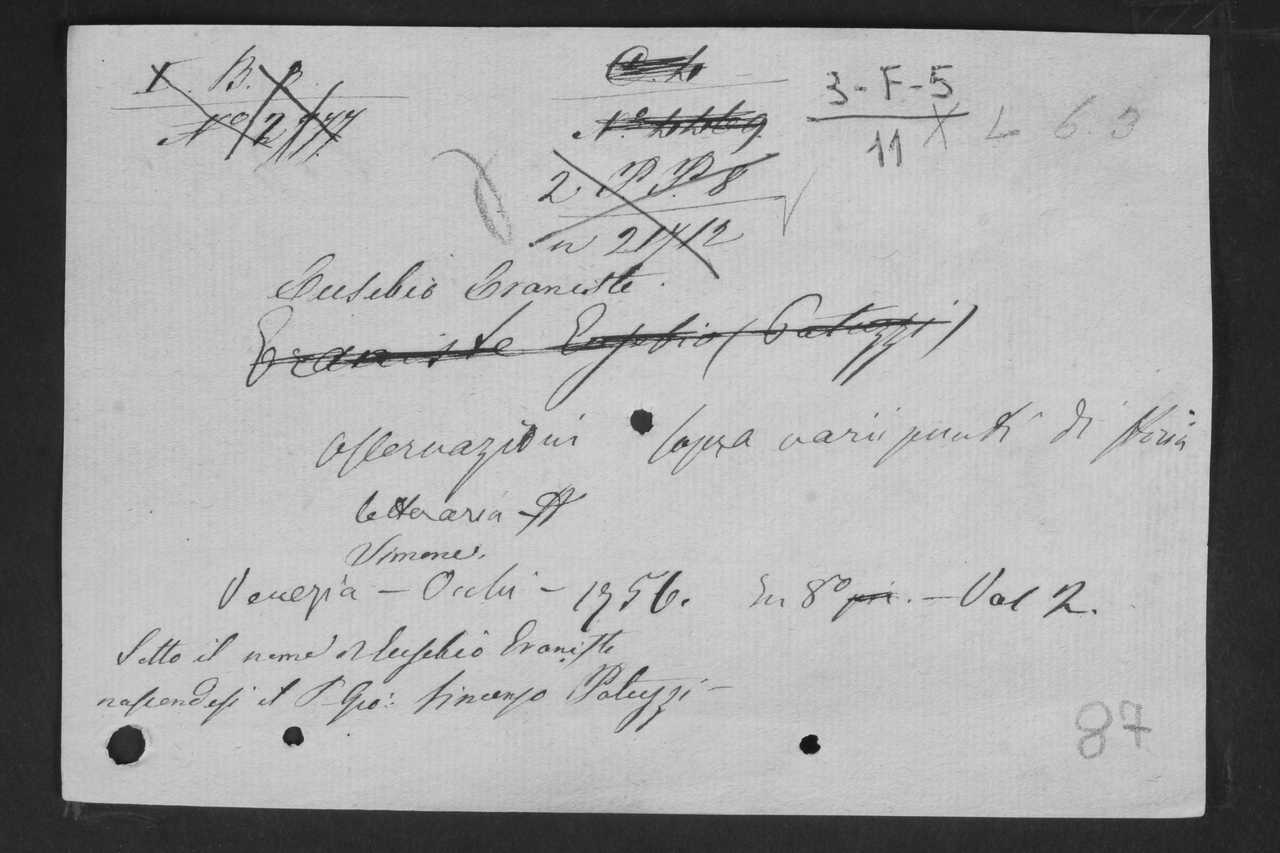 X. B. P.
No 2777
3-F-5
11
X L 6. 3
2 P. P. 8
n 21712
Eusebio Eraniste.
Eraniste Eusebio (Patuzzi)
Osservazioni sopra varii punti di storia
letteraria
Simone.
Venezia – Occhi – 1756. In 8º pic. – Vol 2.
Sotto il nome di Eusebio Eraniste
nascondesi il P. Gio: Vincenzo Patuzzi –
87